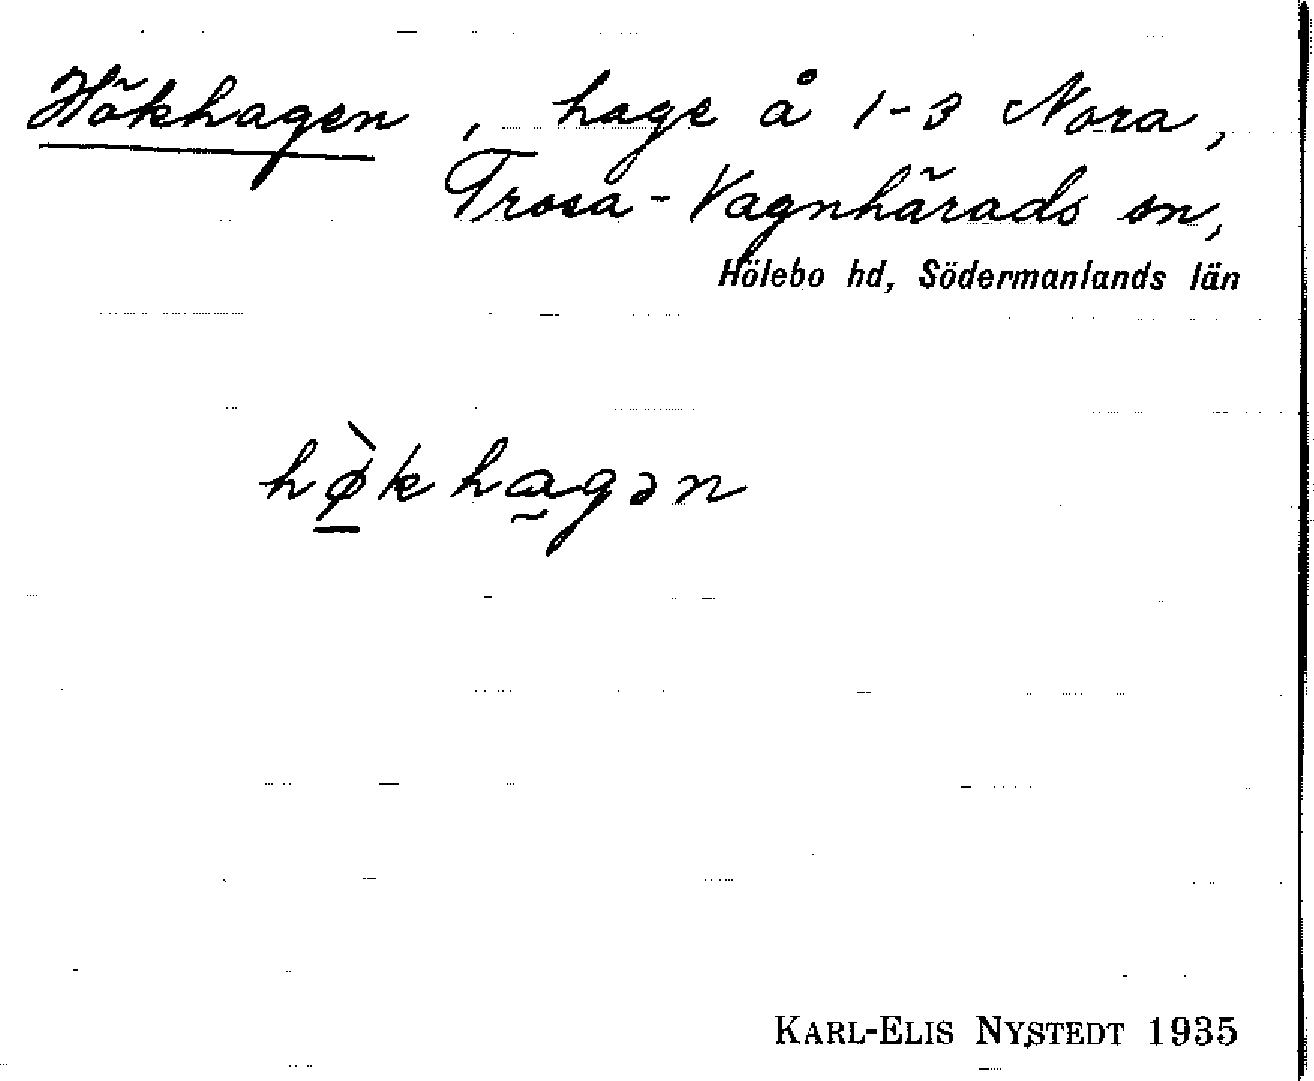 Hökhagen, hage å 1-3 Nora,
Trosa-Vagnhärads sn,
Hölebo hd, Södermanlands län
hø̱̀kha̰gən
KARL-ELIS NYSTEDT 1935